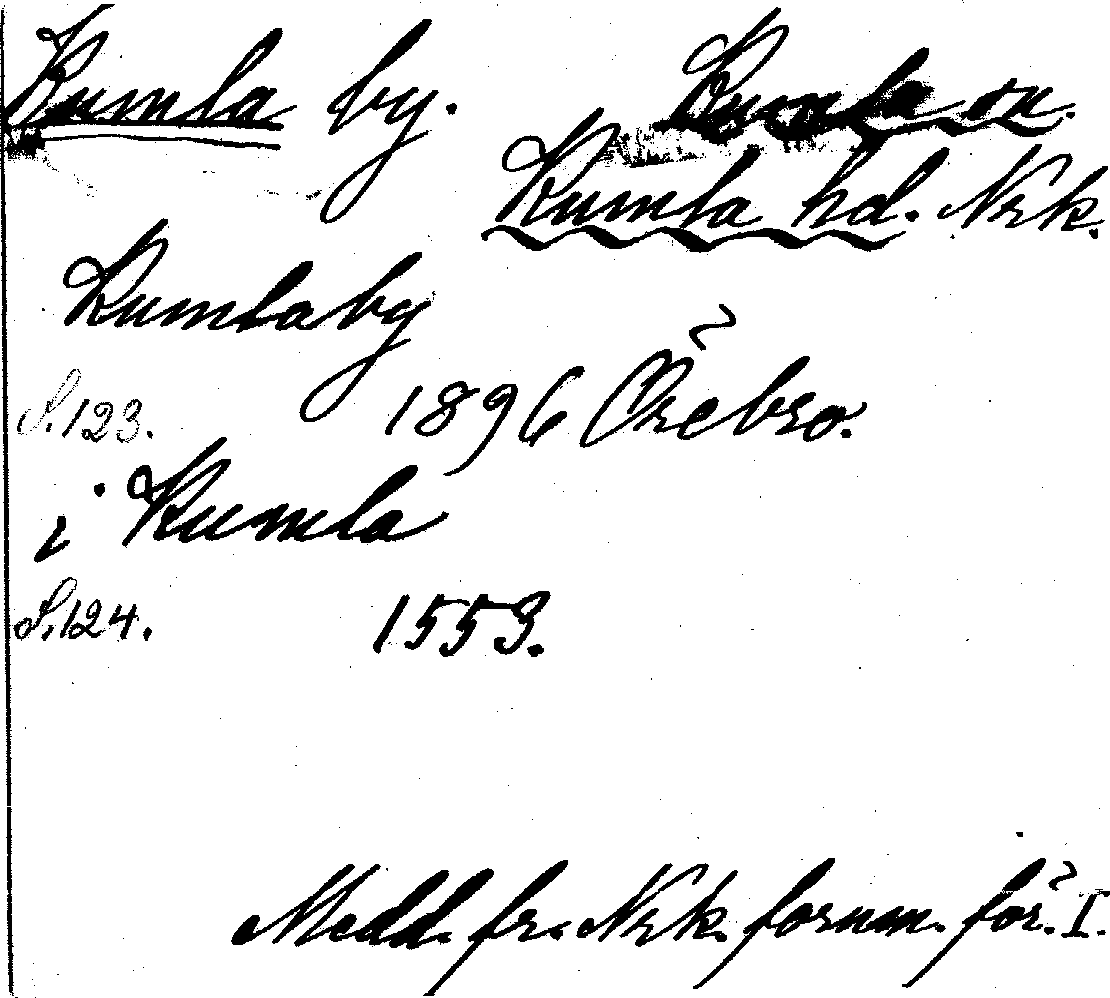 Kumla by. Kumla sn.
Kumla hd. Nrk.
Kumlaby
S. 123. 1896 Örebro.
i Kumla
S. 124. 1553.
Medd. fr. Nrk. fornm. för. I.